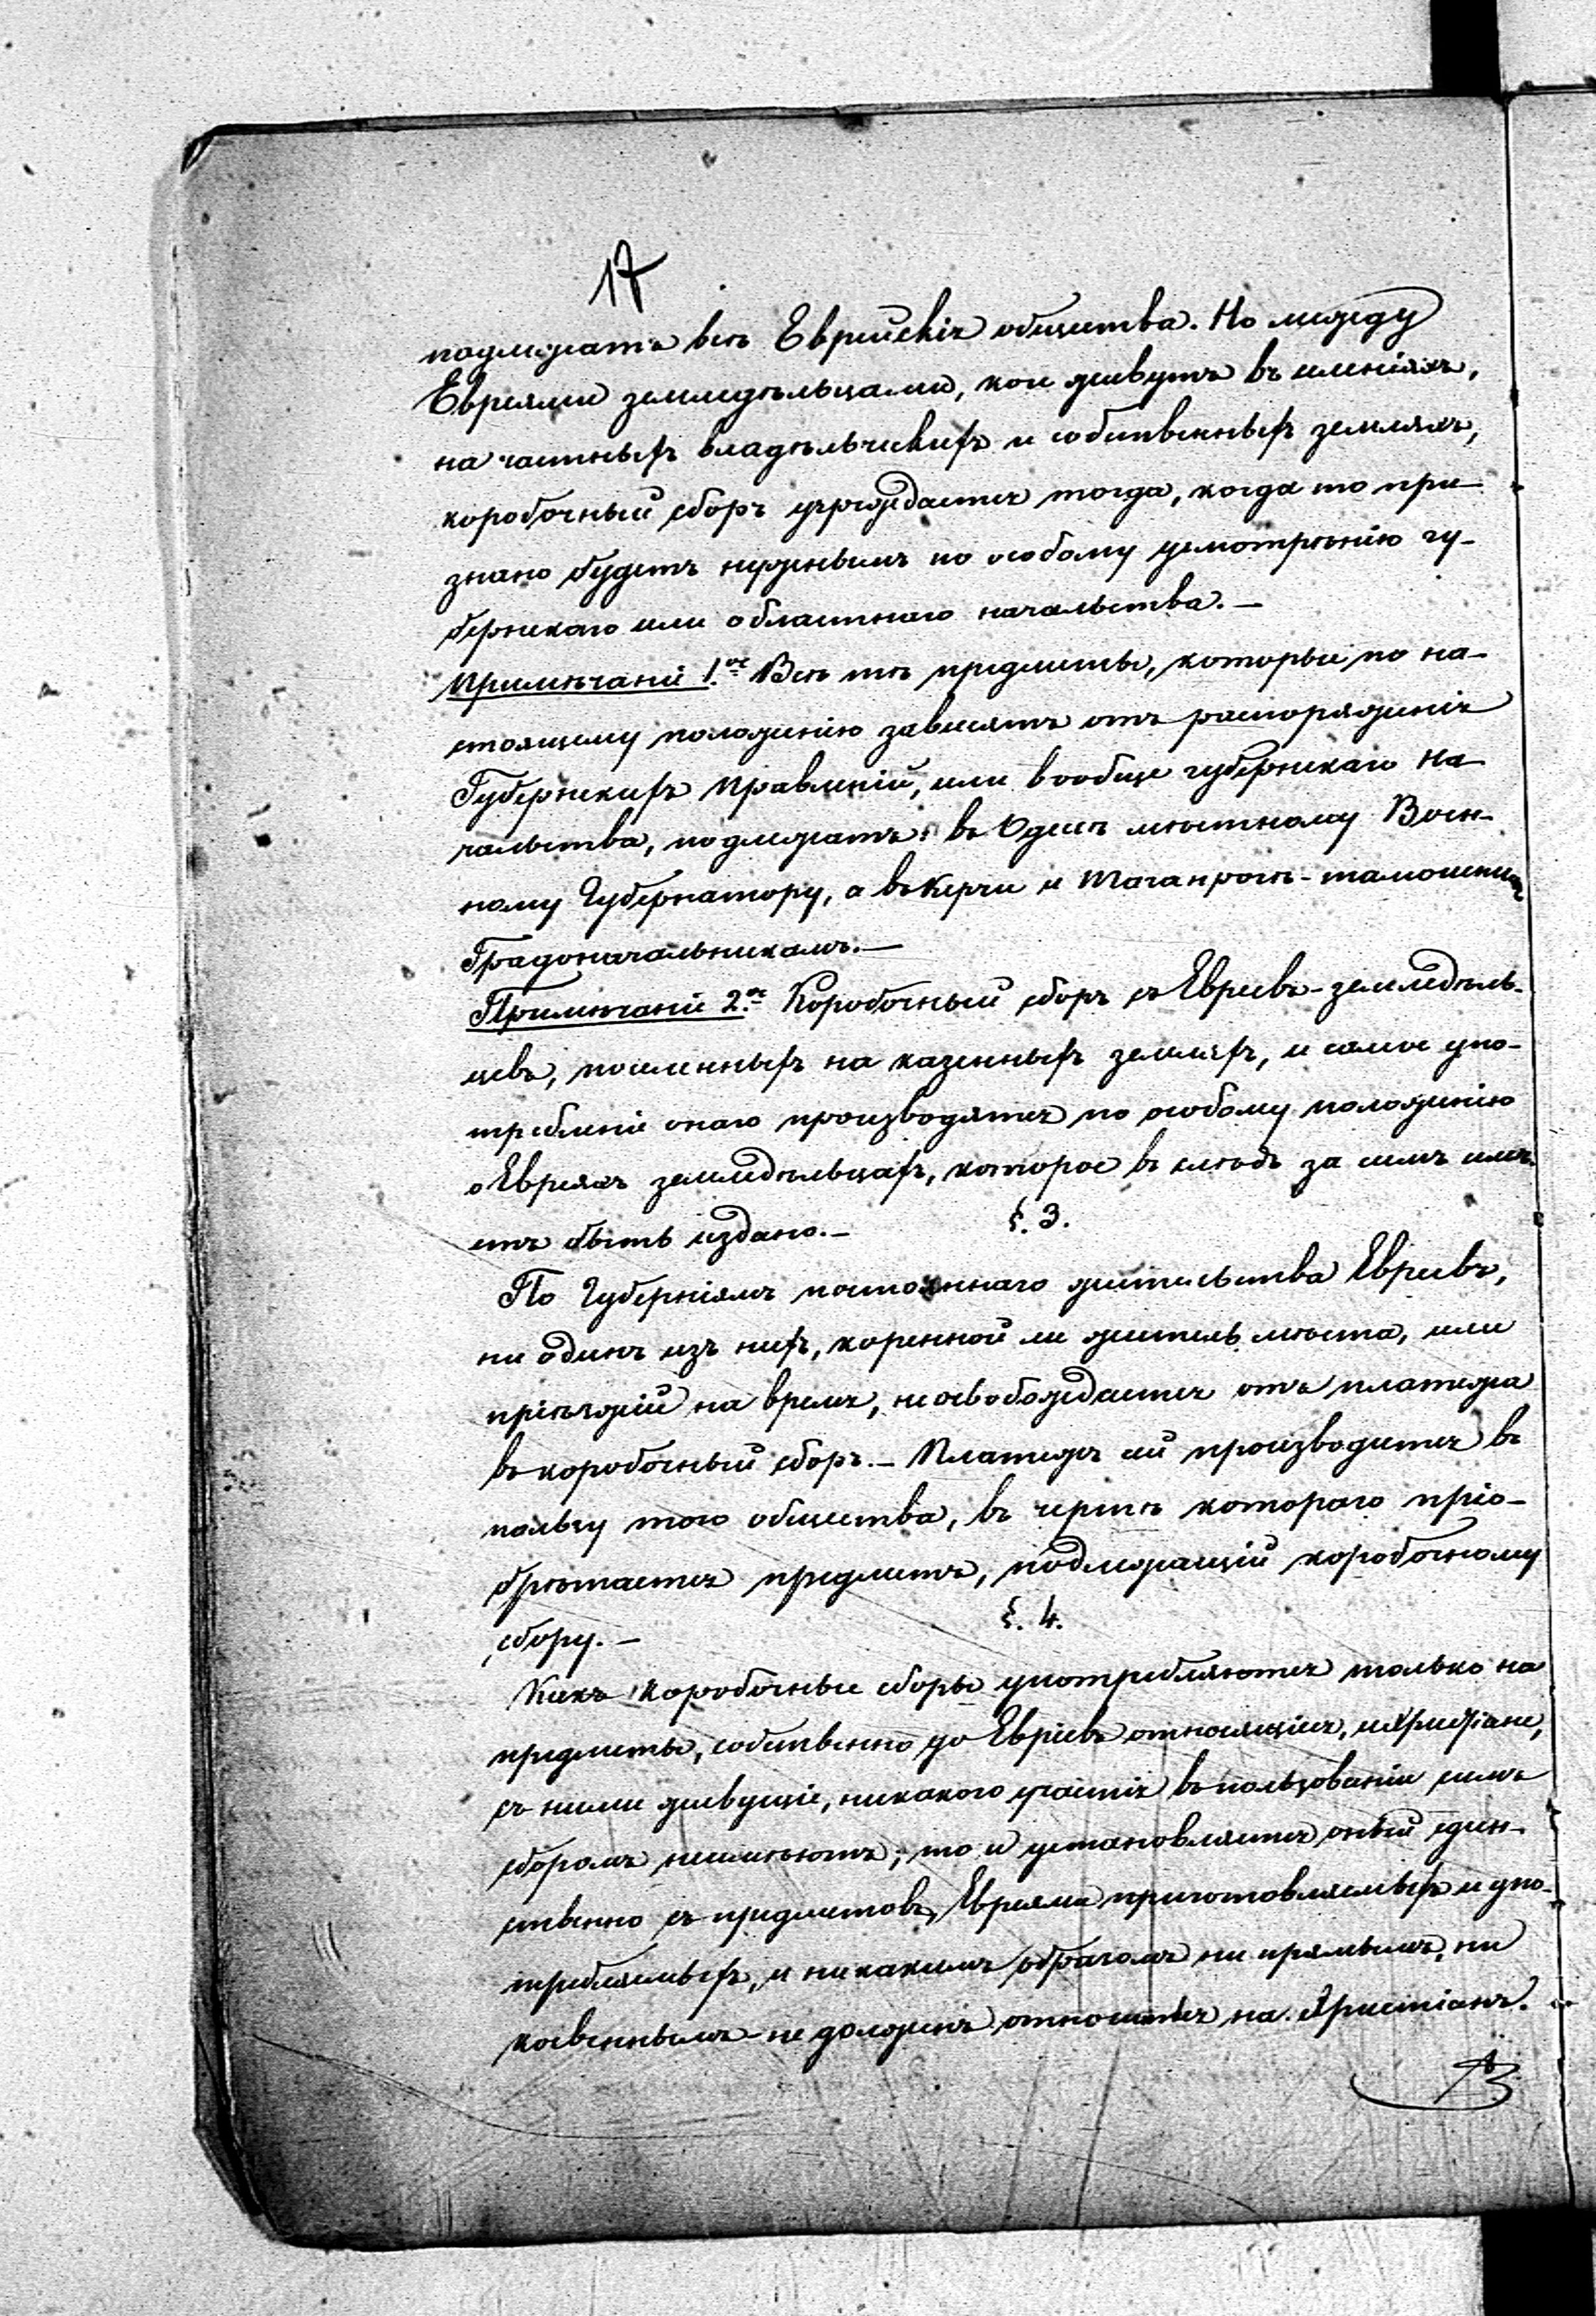 17
подлежатъ всѣ Еврейскія общества. Но между
Евреями земледѣльцами, кои живутъ въ имѣніяхъ,
на частныхъ владѣльческихъ и собственныхъ земляхъ,
коробочный сборъ учреждается тогда, когда то при-
знано будетъ нужнымъ по особому усмотрѣнію гу-
бернскаго или областнаго начальства.—
Примѣчаніе 1.ое Всѣ тѣ предметы, которые, по на-
стоящему положенію зависятъ отъ распоряженія
Губернскихъ Правленій, или вообще губернскаго на-
чальства, подлежатъ: въ Одессѣ мѣстному Воен-
ному Губернатору, а въ Керчи и Таганрогѣ - тамошнимъ
Градоначальникамъ.—
Примѣчаніе 2.ое Коробочный сборъ съ Евреевъ-земледѣль-
цевъ, поселенныхъ на казенныхъ земляхъ, и самое упо-
требленіе онаго производятся по особому положенію
о Евреяхъ земледѣльцахъ, которое въ слѣдъ за симъ имѣ-
етъ быть издано.—
§. 3.
По Губерніямъ постояннаго жительства Евреевъ,
ни одинъ изъ нихъ, коренной ли житель мѣста, или
пріѣзжій на время, не освобождается отъ платежа
въ коробочный сборъ.— Платежъ сей производится въ
пользу того общества, въ чертѣ котораго пріо-
брѣтается предметъ, подлежащій коробочному
сбору.—
§. 4.
Какъ коробочные сборы употребляются только на
предметы, собственно до Евреевъ относящіеся, и Христіане,
съ ними живущіе, никакого участія въ пользованіи симъ
сборомъ неимѣютъ; то и установляется оный един-
ственно съ предметовъ, Евреями приготовляемыхъ и упо-
требляемыхъ, и никакимъ образомъ ни прямымъ, ни
косвеннымъ - не долженъ относиться на Христіанъ.